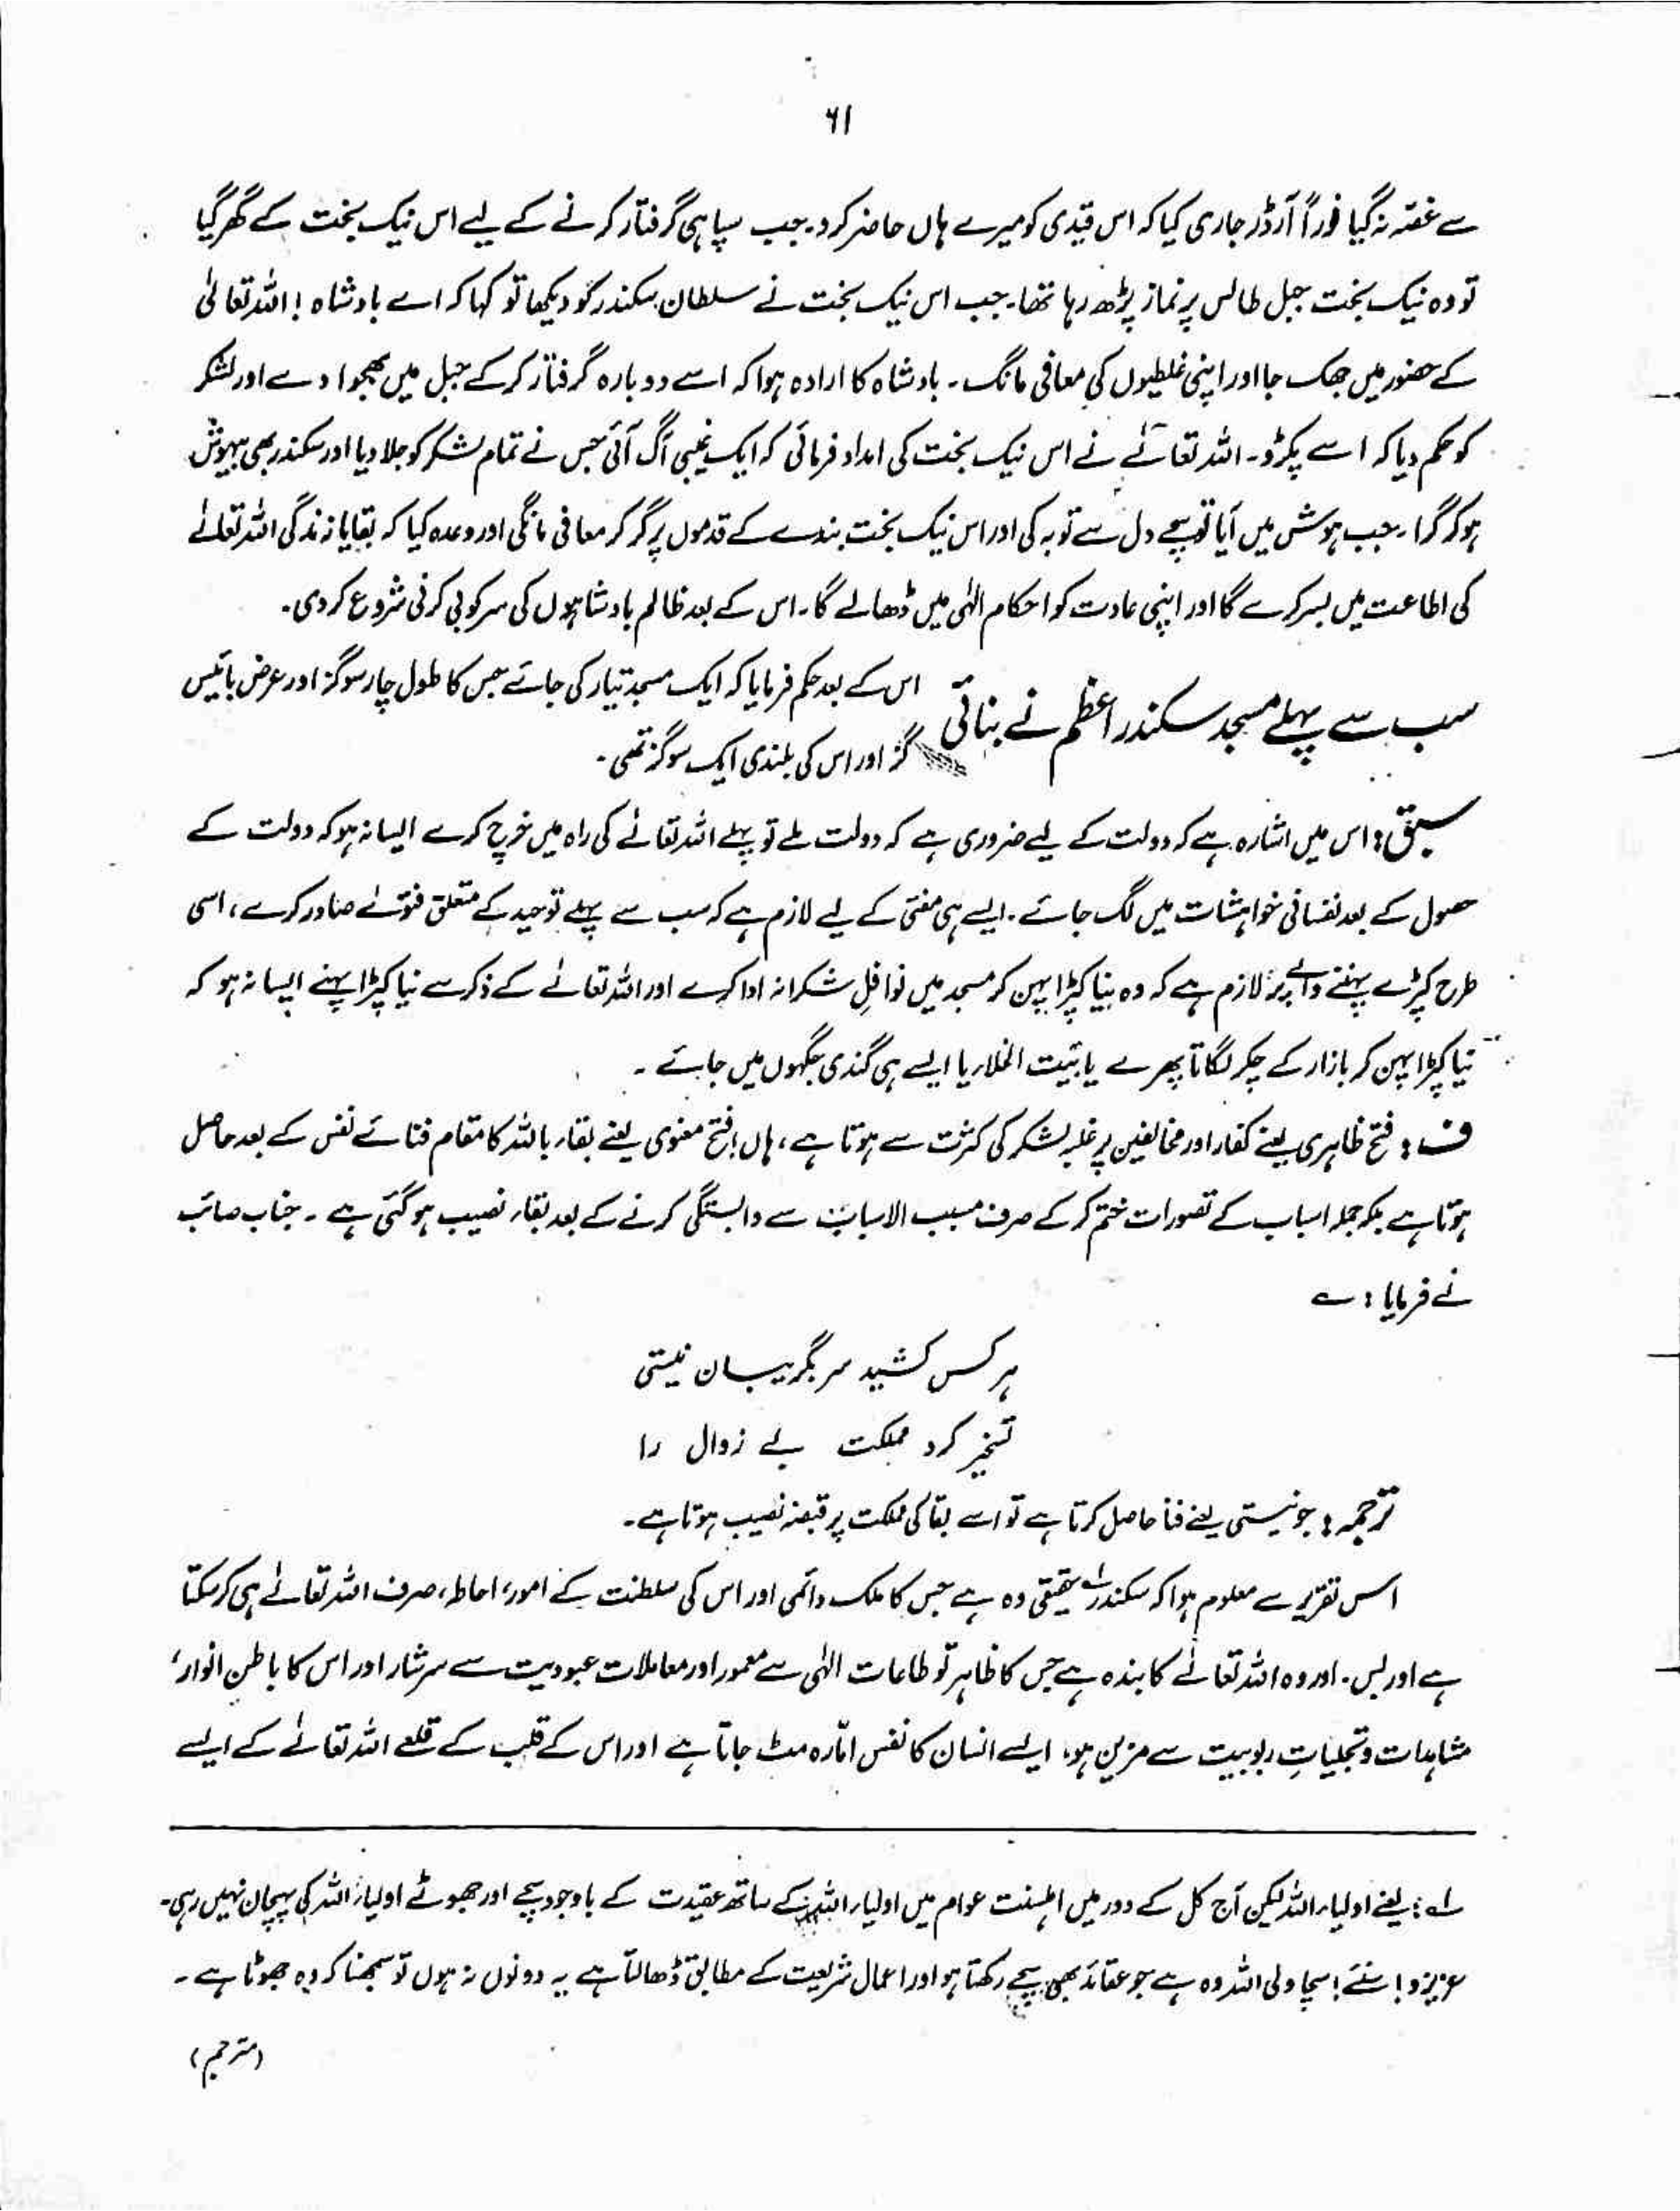 ۶۱
سے غصّہ نہ گیا فوراً آرڈر جاری کیا کہ اس قیدی کو میرے ہاں حاضر کرو۔ جب سپاہی گرفتار کرنے کے لیے اس نیک بخت کے گھر گیا
تو وہ نیک بخت جبل طالس پر نماز پڑھ رہا تھا۔ جب اس نیک بخت نے سلطان سکندر کو دیکھا تو کہا کہ اے بادشاہ! اللہ تعالیٰ
کے حضور میں جھک جا اور اپنی غلطیوں کی معافی مانگ۔ بادشاہ کا ارادہ ہوا کہ اسے دوبارہ گرفتار کر کے جیل میں بھجوا دے اور لشکر
کو حکم دیا کہ اسے پکڑو۔ اللہ تعالےٰ نے اس نیک بخت کی امداد فرمائی کہ ایک غیبی آگ آئی جس نے تمام لشکر کو جلا دیا اور سکندر بھی بیہوش
ہو کر گرا۔ جب ہوش میں آیا تو سچے دل سے توبہ کی اور اس نیک بخت بندے کے قدموں پر گر کر معافی مانگی اور وعدہ کیا کہ بقایا زندگی اللہ تعالےٰ
کی اطاعت میں بسر کرے گا اور اپنی عادت کو احکام الٰہی میں ڈھالے گا۔ اس کے بعد ظالم بادشاہوں کی سرکوبی کرنی شروع کر دی۔
سب سے پہلے مسجد سکندر اعظم نے بنائی
اس کے بعد حکم فرمایا کہ ایک مسجد تیار کی جائے جس کا طول چار سو گز اور عرض بائیس
گز اور اس کی بلندی ایک سو گز تھی۔
سبق : اس میں اشارہ ہے کہ دولت کے لیے ضروری ہے کہ دولت ملے تو پہلے اللہ تعالےٰ کی راہ میں خرچ کرے ایسا نہ ہو کہ دولت کے
حصول کے بعد نفسانی خواہشات میں لگ جائے۔ ایسے ہی مفتی کے لیے لازم ہے کہ سب سے پہلے توحید کے متعلق فتوےٰ صادر کرے، اسی
طرح کپڑے پہننے والے پر لازم ہے کہ وہ نیا کپڑا پہن کر مسجد میں نوافلِ شکرانہ ادا کرے اور اللہ تعالےٰ کے ذکر سے نیا کپڑا پہنے ایسا نہ ہو کہ
نیا کپڑا پہن کر بازار کے چکر لگاتا پھرے یا بیت الخلاء یا ایسے ہی گندی جگہوں میں جائے۔
ف : فتح ظاہری یعنے کفار اور مخالفین پر غلبہ لشکر کی کثرت سے ہوتا ہے، ہاں! فتح معنوی یعنے بقاء باللہ کا مقام فنائے نفس کے بعد حاصل
ہوتا ہے بلکہ جملہ اسباب کے تصورات ختم کر کے صرف مسبب الاسباب سے وابستگی کرنے کے بعد بقاء نصیب ہو گئی ہے۔ جناب صائب
نے فرمایا : ؎
ہر کس کشید سر بگریبان نیستی
تسخیر کرد مملکت بے زوال را
ترجمہ : جو نیستی یعنے فنا حاصل کرتا ہے تو اسے بقا کی مملکت پر قبضہ نصیب ہوتا ہے۔
اس تقریر سے معلوم ہوا کہ سکندر حقیقی لہ وہ ہے جس کا ملک دائمی اور اس کی سلطنت کے امور، احاطہ، صرف اللہ تعالےٰ ہی کر سکتا
ہے اور بس۔ اور وہ اللہ تعالےٰ کا بندہ ہے جس کا ظاہر تو طاعات الٰہی سے معمور اور معاملات عبودیت سے سرشار اور اس کا باطن انوار،
مشاہدات و تجلیاتِ ربوبیت سے مزین ہو، ایسے انسان کا نفس امّارہ مٹ جاتا ہے اور اس کے قلب کے قلعے اللہ تعالےٰ کے ایسے
لہ : یعنے اولیاء اللہ لیکن آج کل کے دور میں اہلسنت عوام میں اولیاء اللہ کے ساتھ عقیدت کے باوجود سچے اور جھوٹے اولیاء اللہ کی پہچان نہیں رہی۔
عزیزو! سنئے! سچا ولی اللہ وہ ہے جو عقائد بھی سچے رکھتا ہو اور اعمال شریعت کے مطابق ڈھالتا ہے یہ دونوں نہ ہوں تو سمجھنا کہ وہ جھوٹا ہے۔
(مترجم)